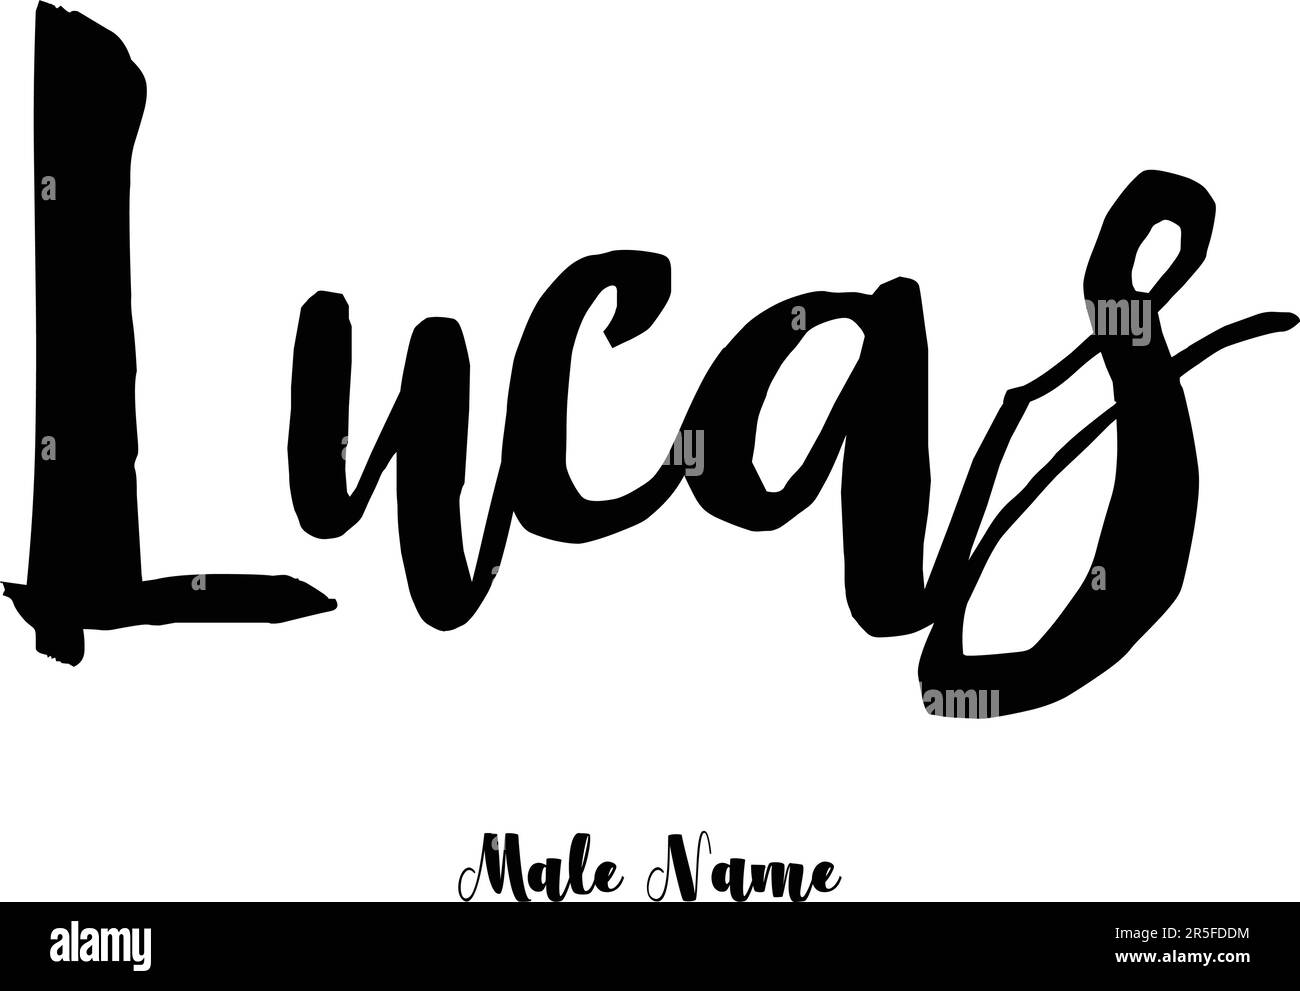 Lucas
Male Name
alamy
Image ID: 2R5FDDM
www.alamy.com